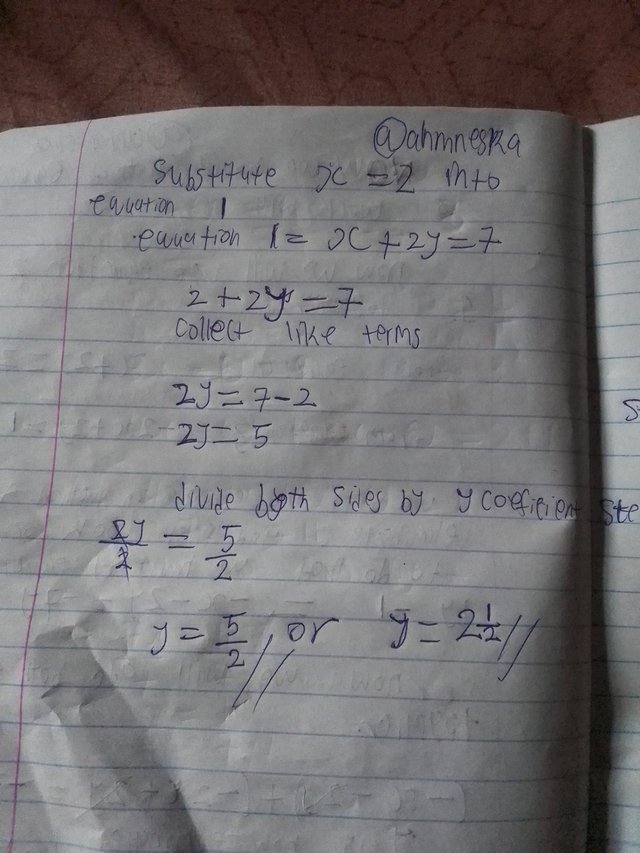 @ahmneska
Substitute x = 2 into
equation 1
equation 1 = x + 2y = 7
2 + 2y = 7
collect like terms
2y = 7 - 2
2y = 5
divide both sides by y coefficient
2y/2 = 5/2
y = 5/2 // or y = 2 1/2 //